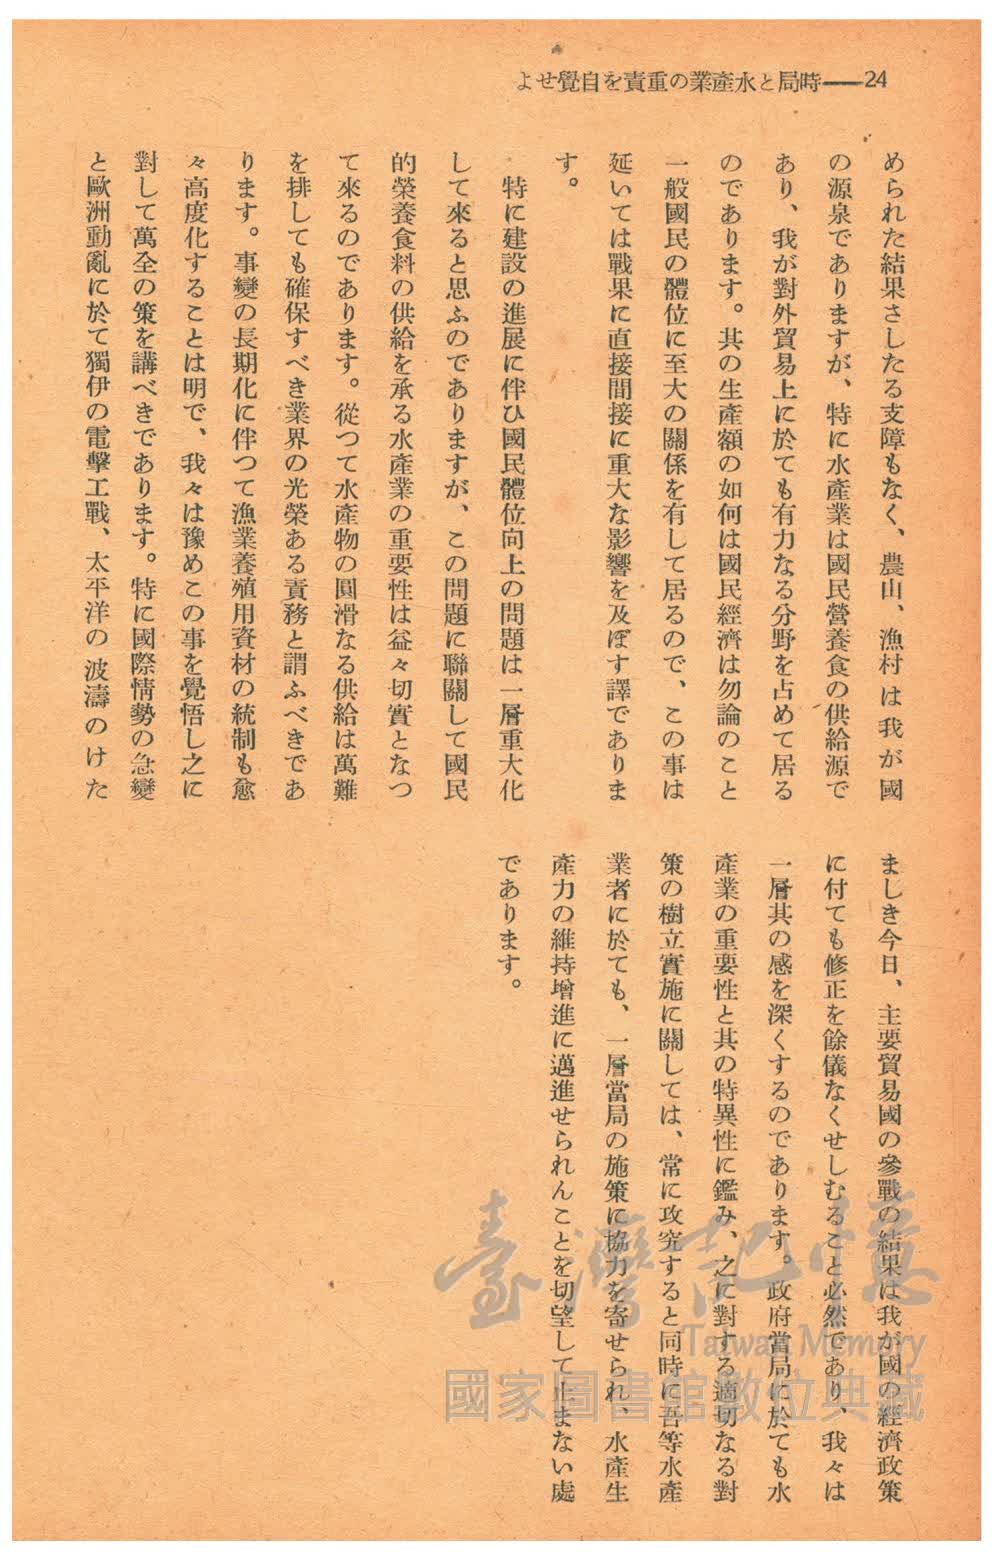 時局と水產業の重責を自覺せよ——24
められた結果さしたる支障もなく、農山、漁村は我が國
の源泉でありますが、特に水產業は國民營養食の供給源で
あり、我が對外貿易上に於ても有力なる分野を占めて居る
のであります。其の生產額の如何は國民經濟は勿論のこと
一般國民の體位に至大の關係を有して居るので、この事は
延いては戰果に直接間接に重大な影響を及ぼす譯でありま
す。
特に建設の進展に伴ひ國民體位向上の問題は一層重大化
して來ると思ふのでありますが、この問題に聯關して國民
的榮養食料の供給を承る水產業の重要性は益々切實となつ
て來るのであります。從つて水產物の圓滑なる供給は萬難
を排しても確保すべき業界の光榮ある責務と謂ふべきであ
ります。事變の長期化に伴つて漁業養殖用資材の統制も愈
々高度化することは明で、我々は豫めこの事を覺悟し之に
對して萬全の策を講べきであります。特に國際情勢の急變
と歐洲動亂に於て獨伊の電擊工戰、太平洋の波濤のけた
ましき今日、主要貿易國の參戰の結果は我が國の經濟政策
に付ても修正を餘儀なくせしむること必然であり、我々は
一層其の感を深くするのであります。政府當局に於ても水
產業の重要性と其の特異性に鑑み、之に對する適切なる對
策の樹立實施に關しては、常に攻究すると同時に吾等水產
業者に於ても、一層當局の施策に協力を寄せられ、水產生
產力の維持增進に邁進せられんことを切望して止まない處
であります。
臺灣記憶
Taiwan Memory
國家圖書館數位典藏